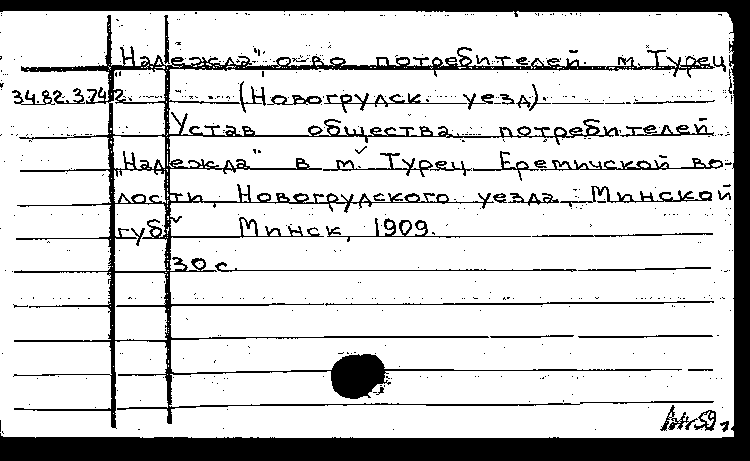 „Надежда" о-во потребителей м. Турец
34.82.3.742. (Новогрудск. уезд).
Устав общества потребителей
„Надежда" в м. Турец Еремичской во-
лости, Новогрудского уезда, Минской
губ. Минск, 1909.
30 с.